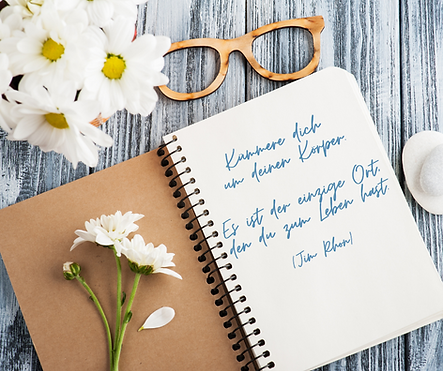 Kümmere dich
um deinen Körper.
Es ist der einzige Ort,
den du zum Leben hast.
(Jim Rhon)